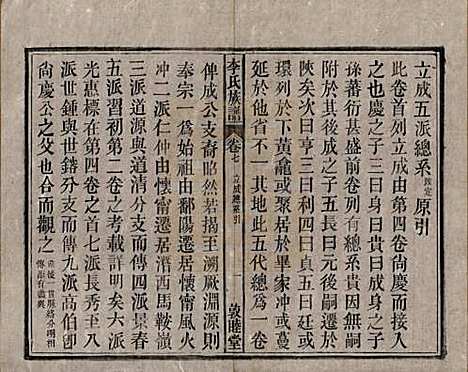 立成五派總系敘定原引
此卷首列立成由第四卷尚慶而接入
之也慶之子三曰身曰貴曰成身之子
孫蕃衍甚盛前卷列有總系貴因無嗣
陝矣次曰亨三曰利四曰貞五曰廷或
環列於下黃龕或聚居於畢家冲或蔓
延於他方不一其地此五代總為一卷
李氏族譜
卷七
立成總系引
一
敦睦堂
俾成公支裔昭然若揭至溯厥淵源則
奉宗一為始祖由鄱陽遷居懷甯風火
冲二派仲由懷甯遷居潛西馬鞍嶺
三派道源與道清分支而傳四派景春
五派習初第二卷之考載詳明矣六派
光惠標在第四卷的首七派長秀至八
派世鍾與世鎔分支而傳九派高伯卽
尚慶公之父也合而觀之